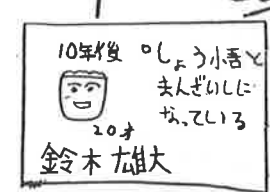 10年後
しょう小吾と
まんざいしに
なっている
20才
鈴木雄大